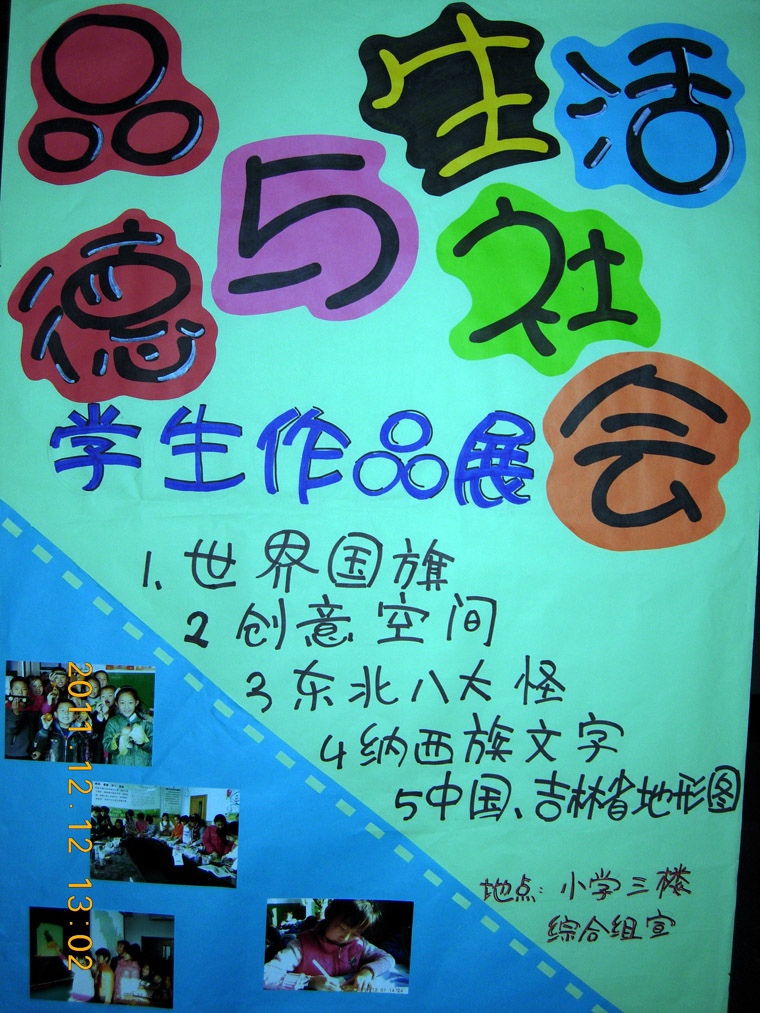 品 生活
德 与 社
会
学生作品展
1、世界国旗
2 创意空间
3 东北八大怪
4 纳西族文字
5 中国、吉林省地形图
地点：小学三楼
综合组宣
2011.12.12 13:02